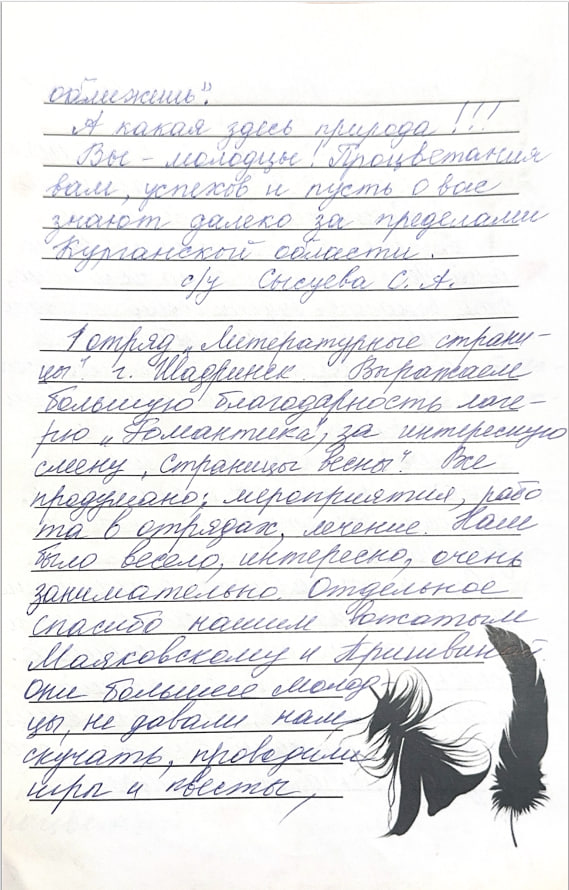 оближешь".
А какая здесь природа!!!
Вы - молодцы! Процветания
вам, успехов и пусть о вас
знают далеко за пределами
Курганской области.
с/у Сысуева С. А.
1 отряд „Литературные страни-
цы" г. Шадринск. Выражаем
большую благодарность лаге-
рю „Романтика", за интересную
смену „Страницы весны". Все
продумано: мероприятия, рабо
та в отрядах, лечение. Нам
было весело, интересно, очень
занимательно. Отдельное
спасибо нашим вожатым
Маяковскому и Пришвиной.
Они большие молод
цы, не давали нам
скучать, проводили
игры и квесты,